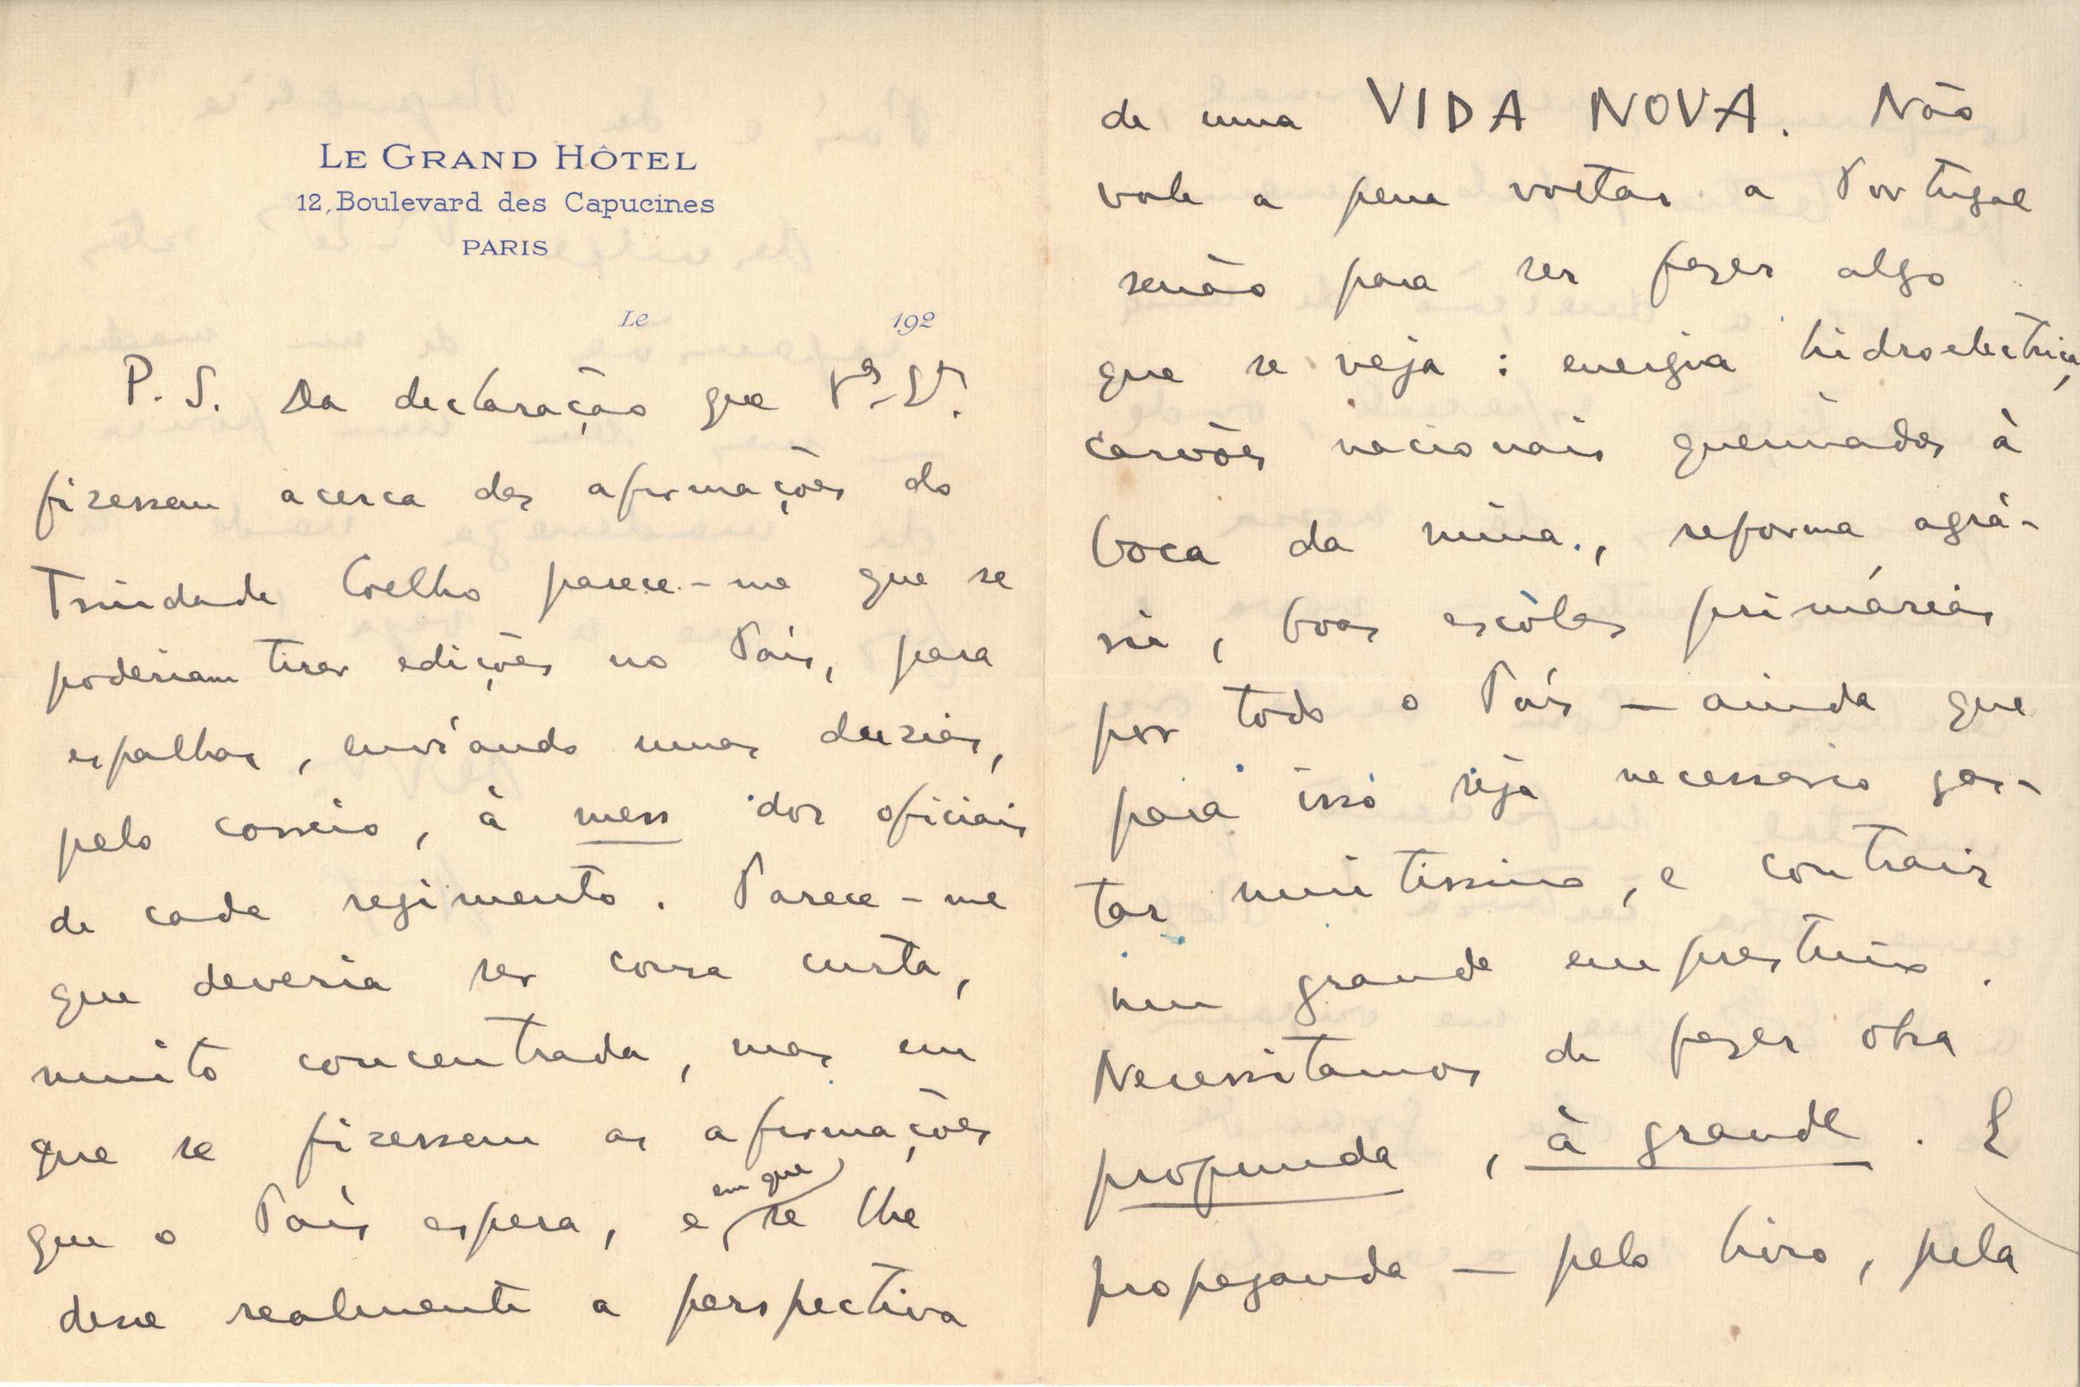 LE GRAND HÔTEL
12, Boulevard des Capucines
PARIS
Le 192
P. S. Da declaração que Vas. Sas.
fizessem acerca das afirmações do
Trindade Coelho parece-me que se
poderiam tirar edições no País, para
espalhar, enviando umas duzias,
pelo correio, à mess dos oficiais
de cada regimento. Parece-me
que deveria ser cousa curta,
muito concentrada, mas em
que se fizessem as afirmações
que o País espera, e em que se lhe
desse realmente a perspectiva
de uma VIDA NOVA. Não
vale a pena voltar a Portugal
senão para se fazer algo
que se veja: energia hidroelectrica,
carvões nacionais queimados à
boca da mina, reforma agrá-
ria, boas escòlas primárias
por todo o País — ainda que
para isso seja necessario gas-
tar muitissimo, e contrair
um grande emprestimo.
Necessitamos de fazer obra
profunda, à grande. E
propaganda — pelo livro, pela